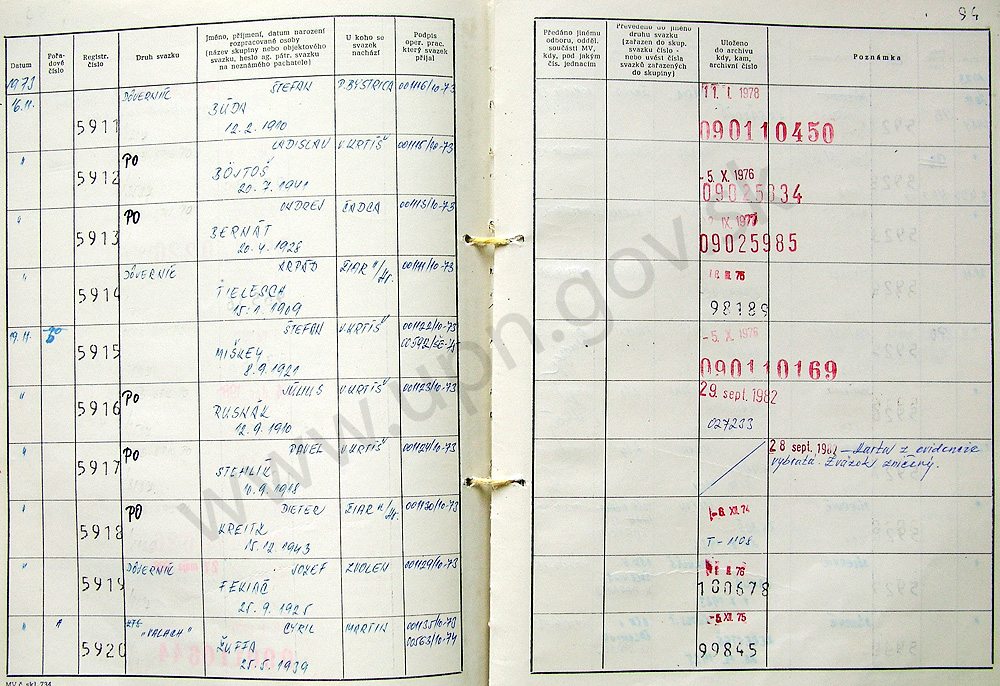 94
Datum
Pořadové číslo
Registr. číslo
Druh svazku
Jméno, příjmení, datum narození rozpracované osoby (název skupiny nebo objektového svazku, heslo ag. pátr. svazku na neznámého pachatele)
U koho se svazek nachází
Podpis oper. prac. který svazek přijal
Předáno jinému odboru, odděl. součásti MV, kdy, pod jakým čís. jednacím
Převedeno do jiného druhu svazku (zařazen do skup. svazku číslo - nebo uvést čísla svazků zařazených do skupiny)
Uloženo do archivu kdy, kam, archivní číslo
Poznámka
1973
16.11. 5911 DÔVERNÍC ŠTEFAN P.BYSTRICA 001116/10-73 11. I. 1978
BÚDA
12.2.1910 090110450
" 5912 PO LADISLAV V.KRTÍŠ 001115/10-73
BÖJTOŠ -5. X. 1976
20.7.1941 09025834
" 5913 PO ONDREJ ČADCA 001113/10-73 IX. 1977
BERNÁT
20.4.1928 09025985
" 5914 DÔVERNÍC ARPÁD ŽIAR n/Hr. 001111/10-73 III. 75
TIELESCH
15.1.1909 98189
19.11. 5915 ŠTEFAN V.KRTÍŠ 001122/10-73 -5. X. 1976
MIŠKEY
8.9.1921 090110169
" 5916 PO JÚLIUS V.KRTÍŠ 001123/10-73 29. sept. 1982
RUSNÁK
12.9.1910 027233
" 5917 PO PAVEL V.KRTÍŠ 001124/10-73 28 sept. 1982 – Karta z evidencie
STEHLIK vybratá. Zväzok zničený.
10.9.1918
" 5918 PO DIETER ŽIAR n/Hr. 001130/10-73 -6. XII. 74
KREITZ
15.12.1943 T-1108
" 5919 DÔVERNÍC JOZEF ZVOLEN 001129/10-73 76
FEKIAČ
25.9.1925 100678
" A 5920 „VALACH" CYRIL MARTIN 001135/10-73 -5 XII. 75
00563/10-74
ŽUFFA
25.5.1939 99845
MV č. skl. 734
www.upn.gov.sk